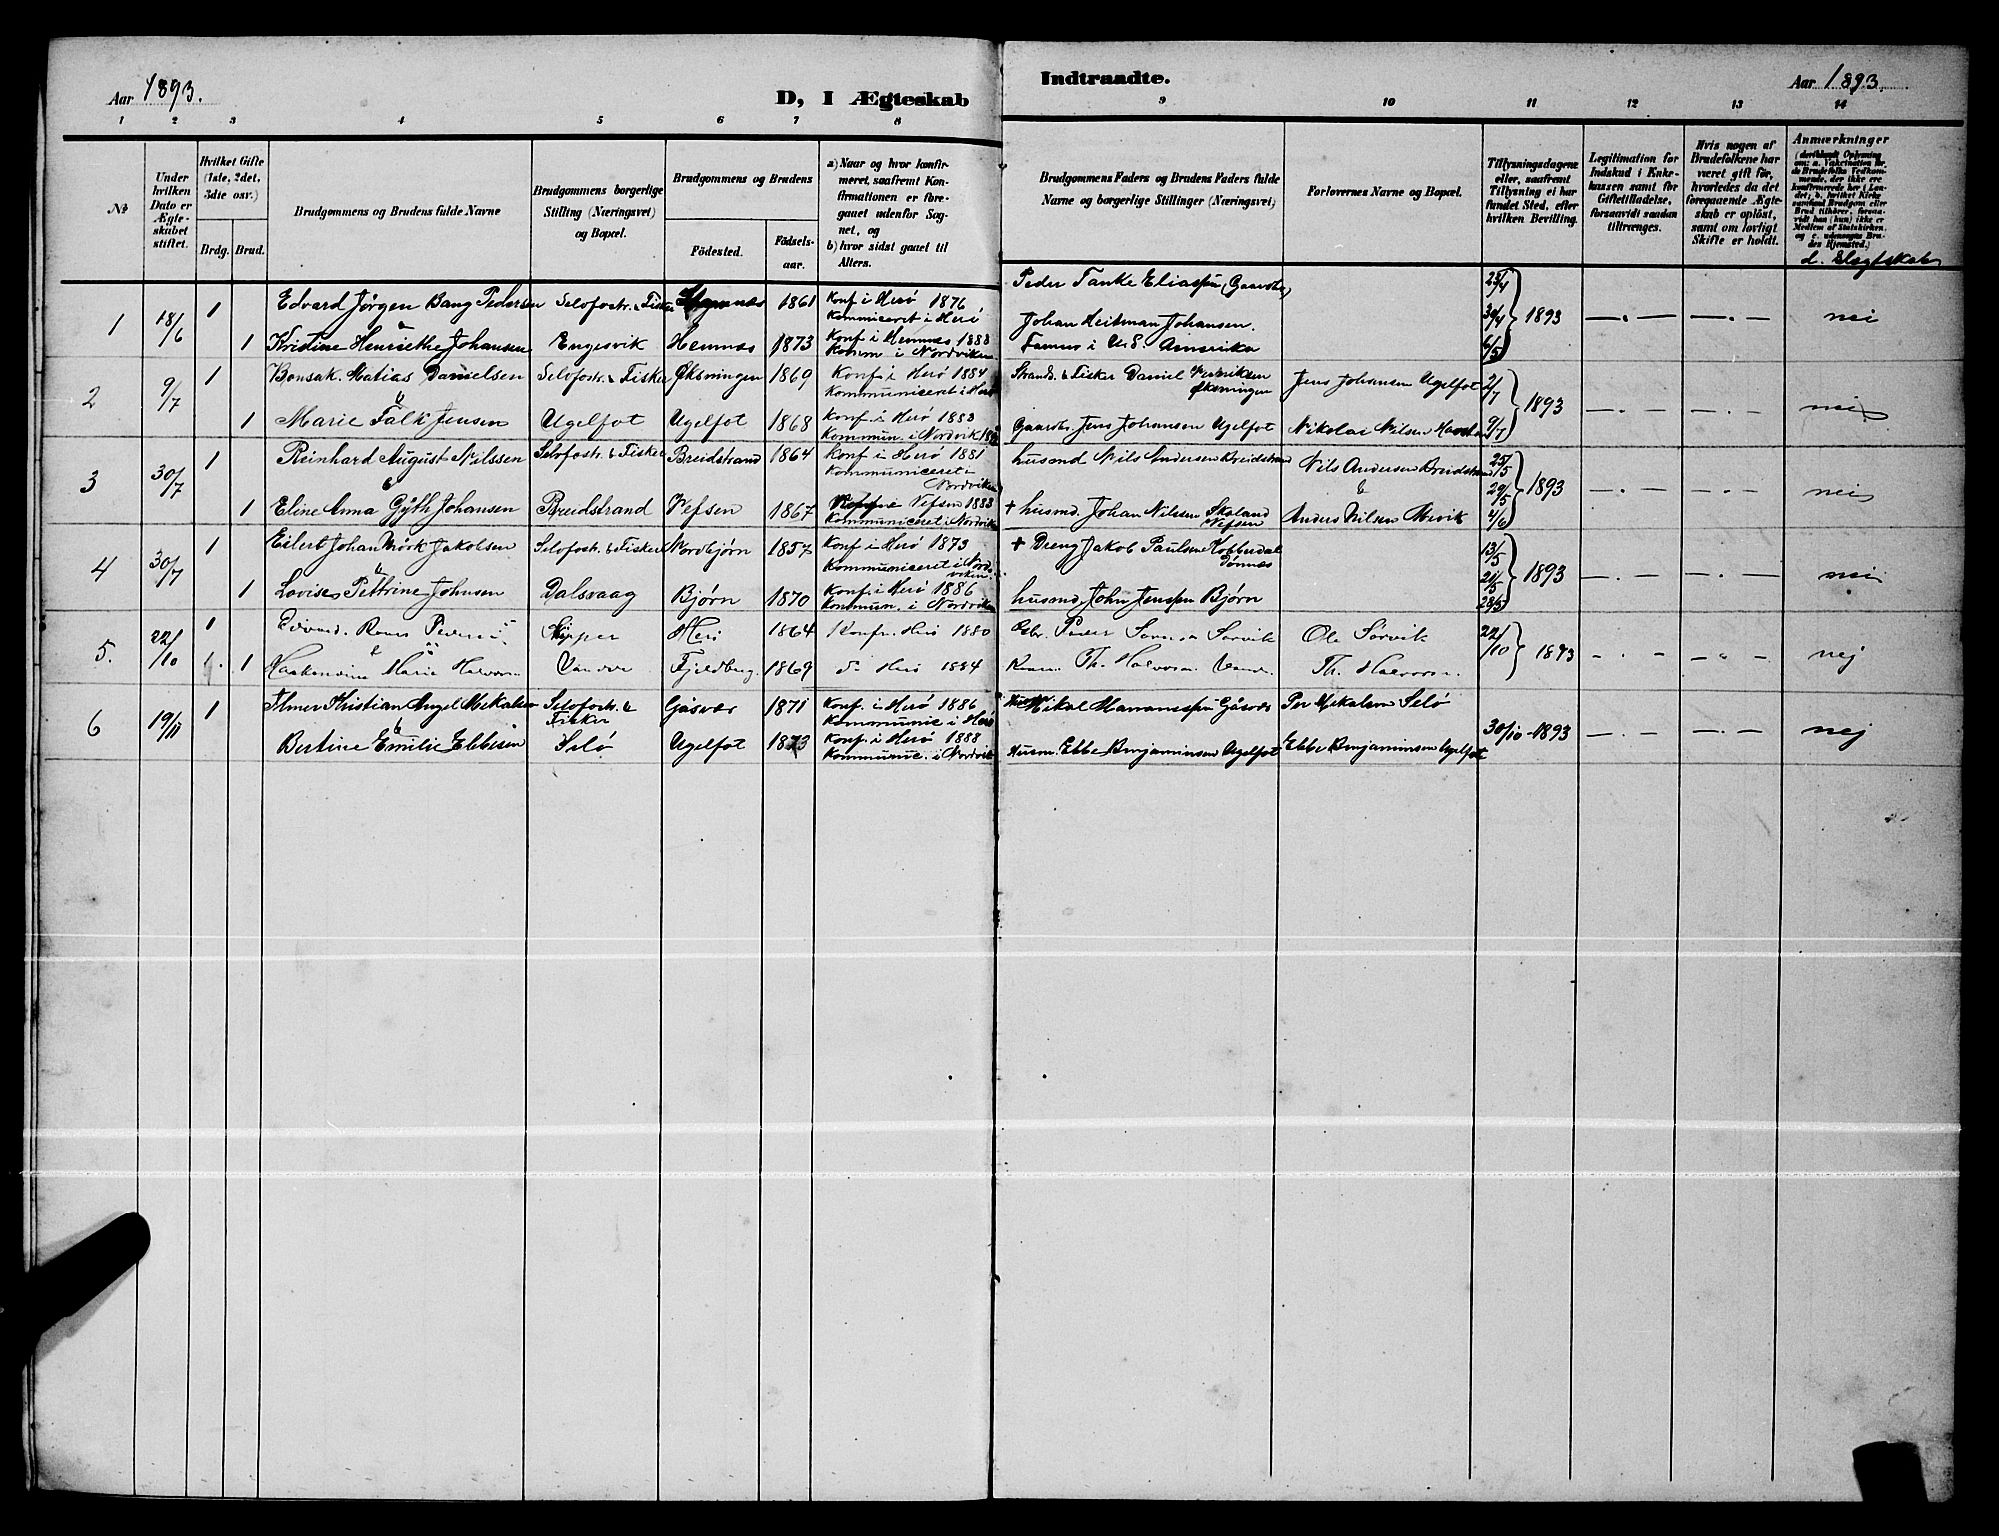 Aar 1893.
D, I Ægteskab
Indtraadte.
Aar 1893.
1 2 3 4 5 6 7 8 9 10 11 12 13 14
№
Under hvilken Dato er Ægteskabet stiftet.
Hvilket Gifte (1ste, 2det, 3die osv.)
Brdg. Brud.
Brudgommens og Brudens fulde Navne
Brudgommens borgerlige Stilling (Næringsvei) og Bopæl.
Brudgommens og Brudens
Födested. Födselsaar.
a) Naar og hvor konfirmeret, saafremt Konfirmationen er foregaaet udenfor Sognet, og
b) hvor sidst gaaet til Alters.
Brudgommens Faders og Brudens Faders fulde Navne og borgerlige Stillinger (Næringsvei)
Forlovernes Navne og Bopæl.
Tillysningsdagene eller, saafremt Tillysning ei har fundet Sted, efter hvilken Bevilling.
Legitimation for Indskud i Enkekassen samt for Giftetilladelse, forsaavidt saadan tiltrænges.
Hvis nogen af Brudefolkene har været gift för, hvorledes da det foregaaende Ægteskab er oplöst, samt om lovligt Skifte er holdt.
Anmærkninger
d. Slegtskab
1 18/6 1 Edvard Jørgen Bang Pedersen Selofostr. & Fisker 1861 Konf. i Herö 1876 Peder Tanke Eliassen (Gaardbr) 23/4
Kommuniceret i Herö 30/4 1893 — . — — . — nei
& Johan Heitman Johansen.
1 Kristine Hensethe Johansen Engesvik Hemnæs 1873 Konf i Hemnæs 1888 Farmer i U.S. Amerika 6/5
Komm i Nordviken
2 9/7 1 Bonsak. Matias Danielsen Selofostr. & Fisker Øksningen 1869 Konf. i Herö 1884 Strands. & Fisker Daniel Henriksen Øksningen Jens Johansen Ugelfot 2/7
Kommuniceret i Herö 1893 — . — — . — nei
& 1 Marie Falk Jensen Ugelfot Ugelfot 1868 Konf. i Herö 1883 Gaardb. Jens Johansen Ugelfot Nikolai Nilsen 9/7
Kommun. i Nordvik
3 30/7 1 Reinhard August Nilssen Selofostr. & Fisker Breidstrand 1864 Konf i Herö 1881 husmd Nils Andersen Breidstrand Nils Andersen Breidstrand 25/5
Kommuniceret i Nordviken & 29/5 1893 — . — — . — nei
& 1 Eline Anna Gÿth Johansen Breidstrand Vefsen 1867 Vefsen 1883 + husmd. Johan Nilssen Skaland Vefsen Anders Nilsen 4/6
Kommuniceret i Nordvik
4 30/7 1 Eilert Johan Mörk Jakobsen Selofostr. & Fisker Nordbjörn 1857 Konf. i Herö 1873 + Dreng Jakob Paulsen Kobberdal Dönnæs 13/5
Kommuniceret i Nordviken. 21/5 1893 — . — — . — nei
& 1 Lovise Pettrine Johnsen Dalsvaag Björn 1870 Konf. i Herö 1886 husmd. John Jenssen Björn 28/5
Kommun. i Nordviken
5. 22/10 1 Edvard Pedersen Skipper Herö 1864 Konfr. Herö 1880 Peder Sørvik Ole Sörvik 22/10
& 1 Marie Halvorsen 1869 do Herö 1884 Th. Halvorsen Th. Halvorsen 1893 — . — — " — nej
6 19/11 1 Elmer Kristian Angel Mikalsen Selofostr. & Fisker Gåsvær 1871 Konf. i Herö 1886 Mikal Gåsvær Per Mikalsen Selö
Kommunic i Herö 30/10-1893 — . — — . — nej
& Bertine Emilie Ebbesen Selö Ugelfot 1873 Konf. i Herö 1888 Husm. Ebbe Benjaminsen Ugelfot Ebbe Benjaminsen Ugelfot
Kommunic. i Nordvik